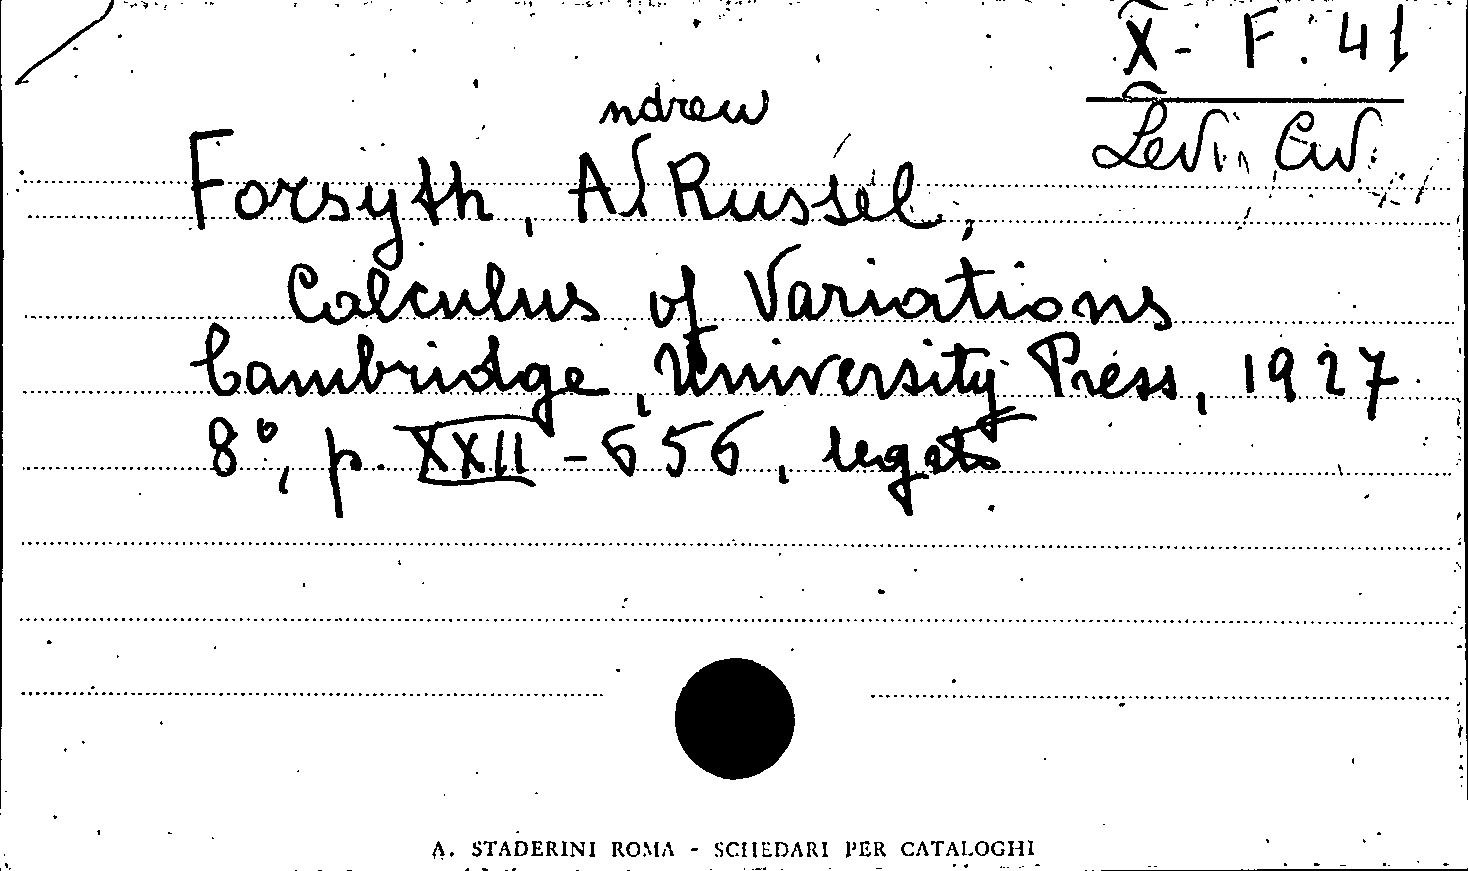 X - F. 41
Levi Civ.
ndrew
Forsyth, A. Russel,
Calculus of Variations
Cambridge, University Press, 1927
8°, p. XXII - 656, legato
A. STADERINI ROMA - SCHEDARI PER CATALOGHI